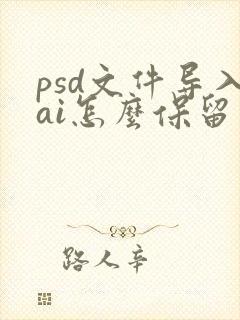 psd文件导入
ai怎麽保留
路人辛